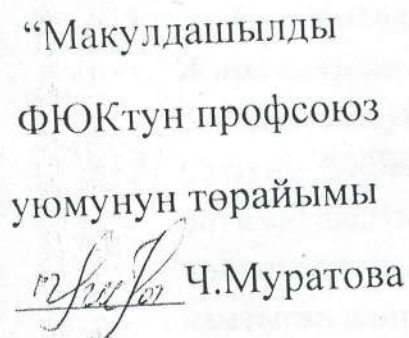 “Макулдашылды
ФЮКтун профсоюз
уюмунун төрайымы
Ч.Муратова